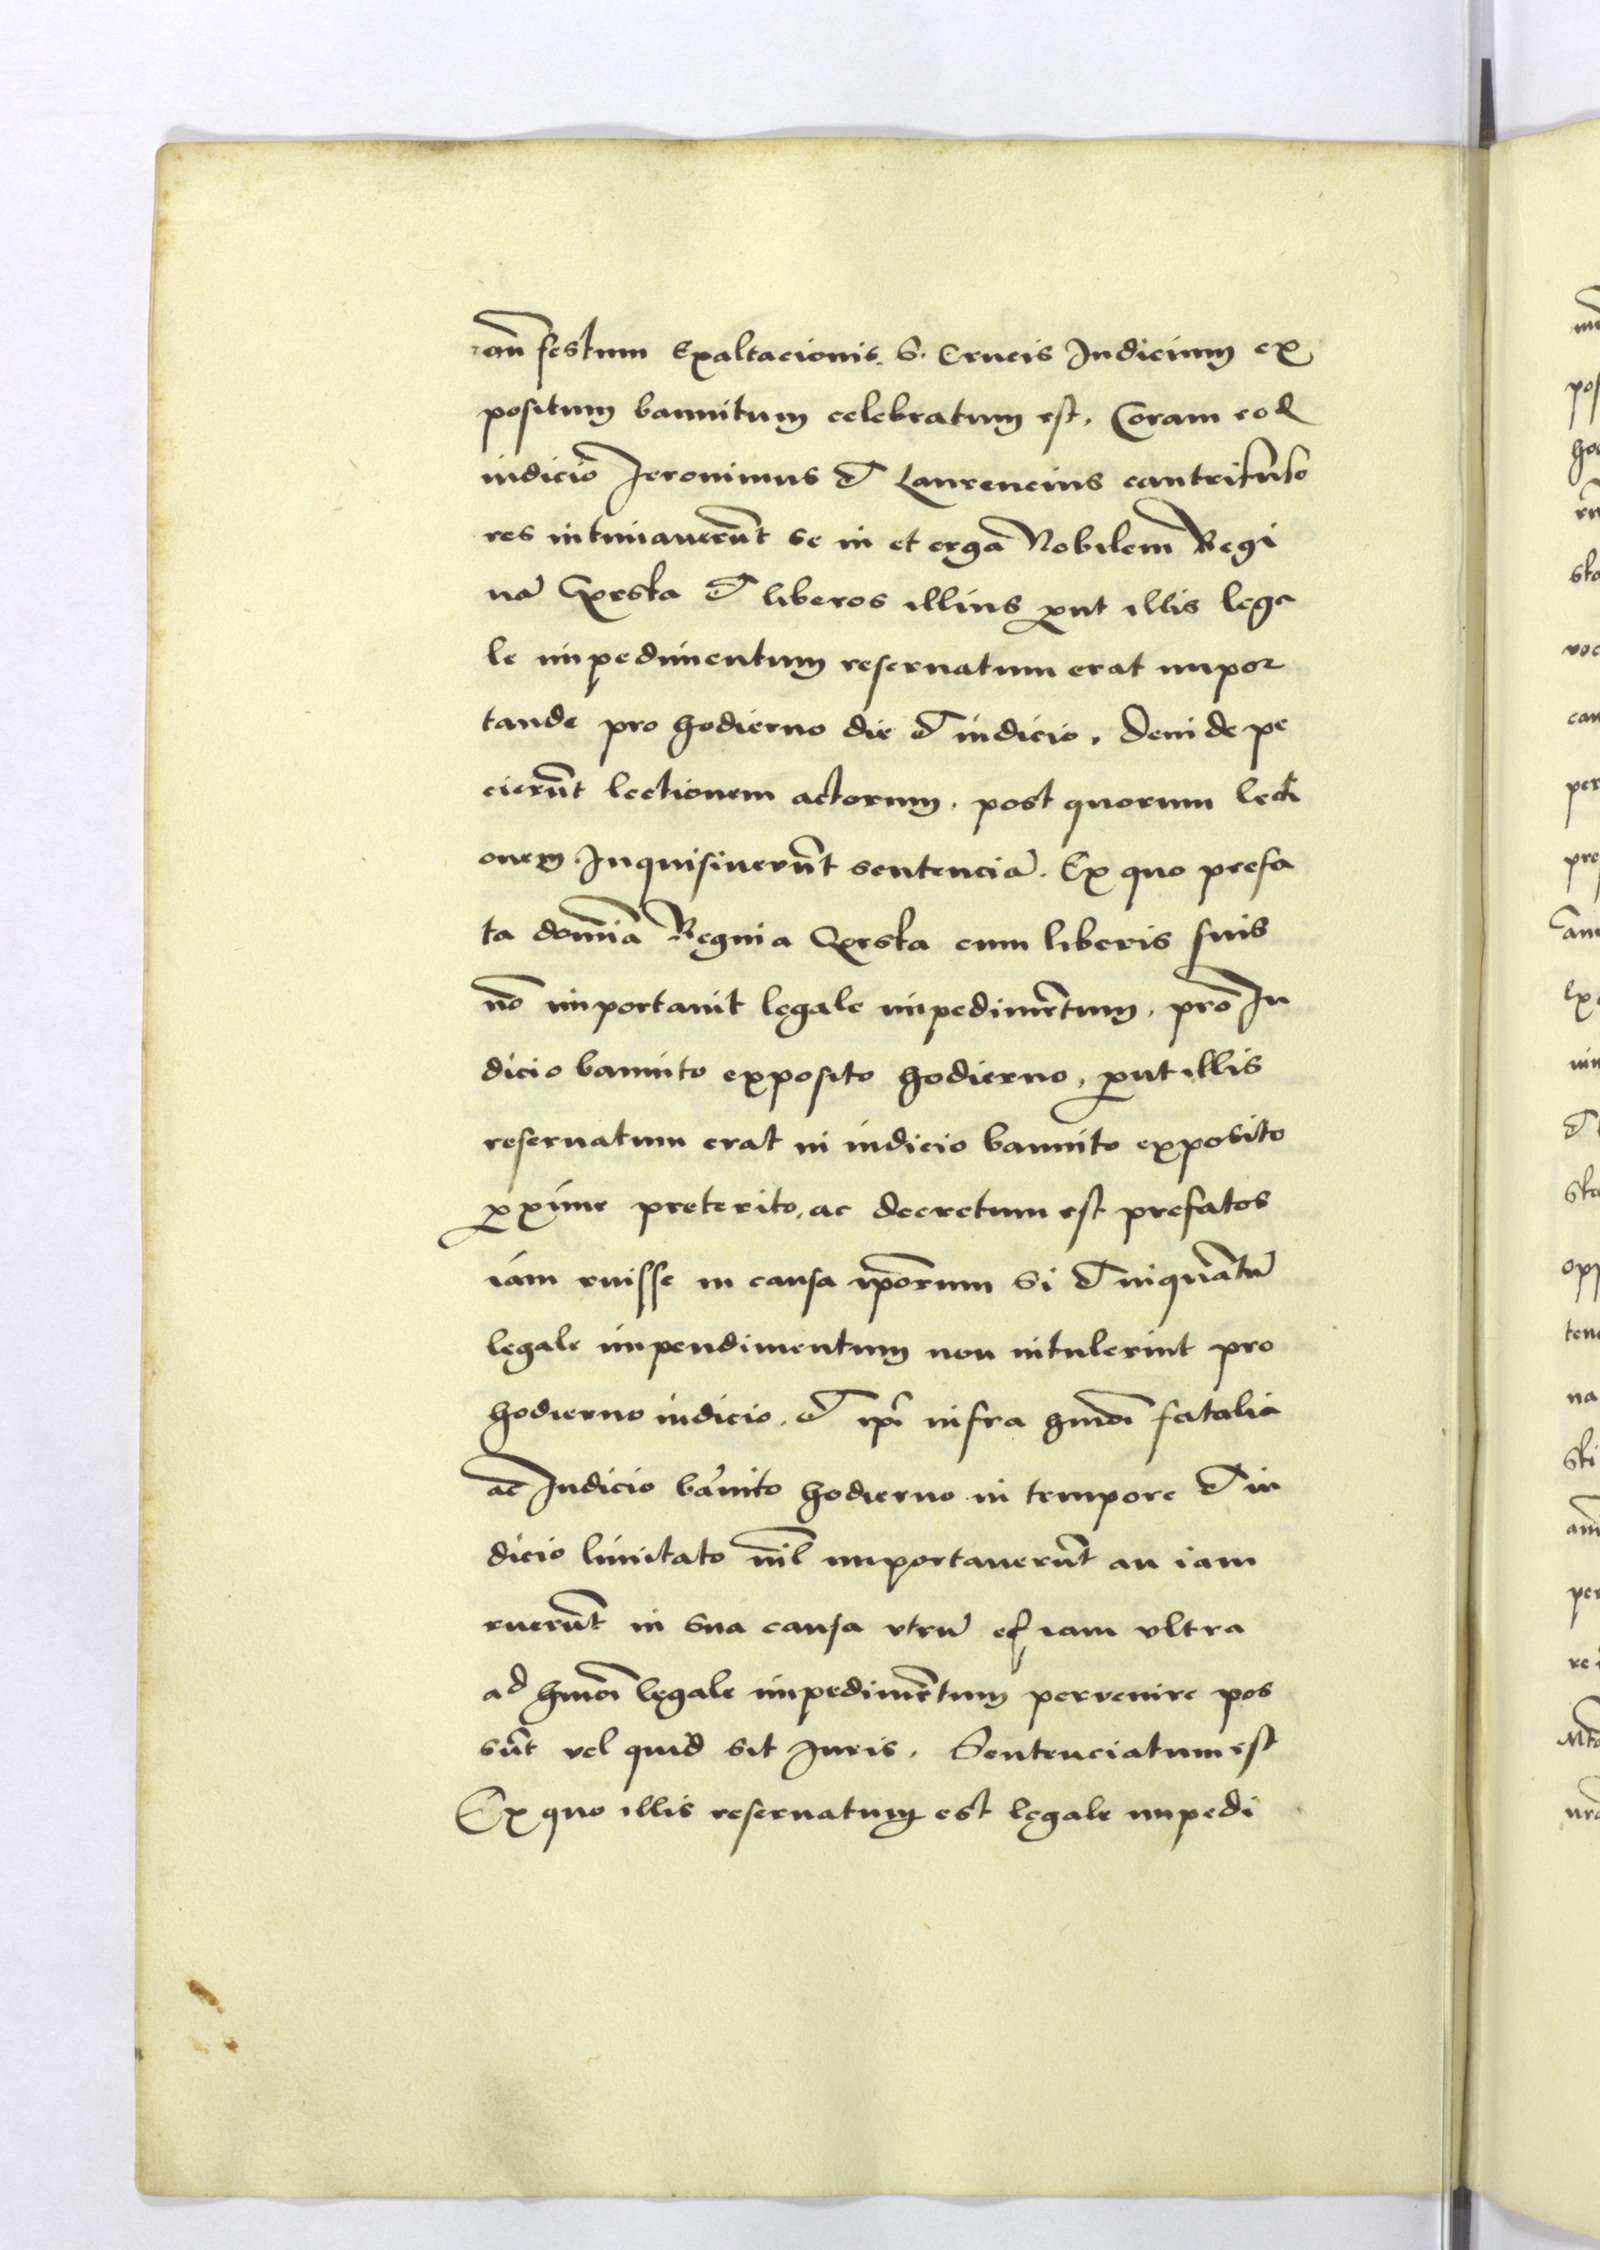 an̄ festum Exaltacionis S. Crucis Judicium ex
positum bannitum celebratum est. Coram eod
iudicio Jeronimus et Laurencius cantrifuso
res intimauerūt se in et erga Nobilem Regi
nā Gxeska et liberos illius ꝓut illis lega
le impedimentum reseruatum erat impor
tande pro hodierno die et iudicio. Deinde pe
cierūt lectionem actorum. post quorum lecti
onem Inquisiuerūt sentenciā. Ex quo prefa
ta domīa Regina Gxeska cum liberis suis
nō importauit legale impedimētum. pro Iu
dicio bannito exposito hodierno, ꝓut illis
reseruatum erat in iudicio bannito exposito
ꝓxime preterito, ac decretum est prefatos
iam ruisse in causa ip̄orum si et inquātū
legale impendimentum non intulerint pro
hodierno iudicio. et ip̄i infra hmōi fatalia
ac Iudicio bānito hodierno in tempore et iu
dicio limitato nīl importauerūt an iam
ruerūt in sua causa vtrū iam vltra
ad hmōi legale impedimētum pervenire pos
sūt vel quid sit Juris. Sentenciatum est
Ex quo illis reseruatum est legale impedi